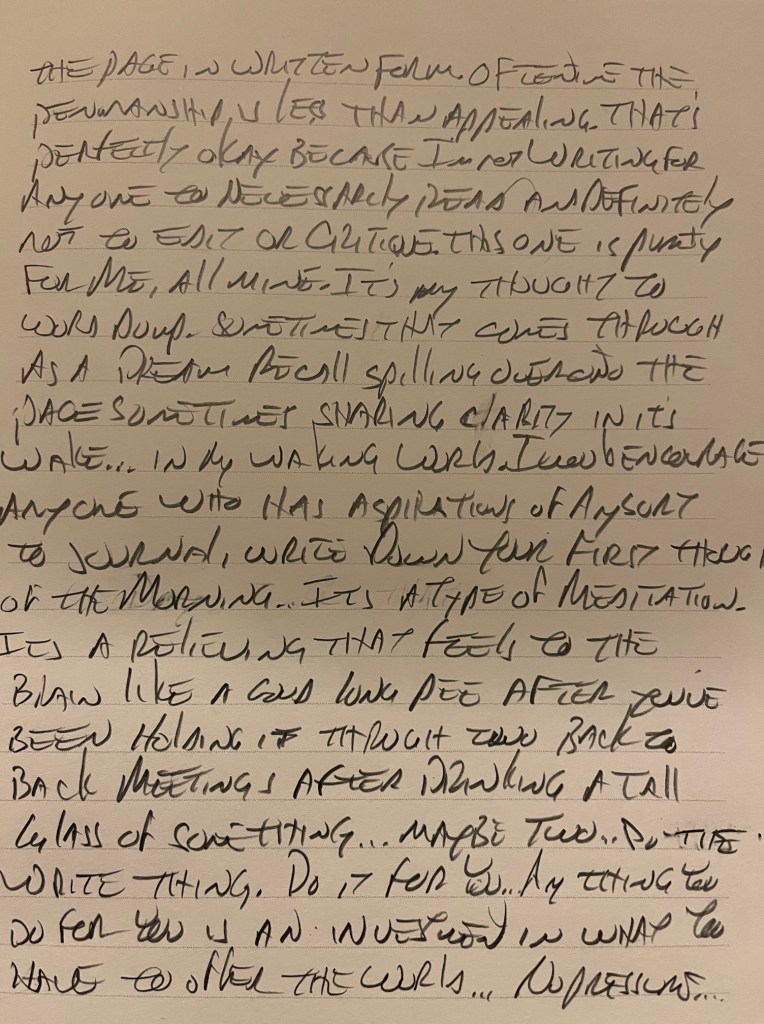 THE PAGE IN WRITTEN FORM. OFTENTIME THE
PENMANSHIP IS LESS THAN APPEALING. THAT'S
PERFECTLY OKAY BECAUSE I'm not WRITING FOR
ANYONE TO NECESSARLY READ AND DEFINITELY
NOT TO EDIT OR CRITIQUE. THIS ONE IS purely
FOR ME, All MINE. IT'S my THOUGHT TO
WORD DUMP. SOMETIMES THAT COMES THROUGH
AS A DREAM RECALL SPILLING OVER ONTO THE
PAGE SOMETIMES SHARING CLARITY IN ITS
WAKE... IN My WAKING WORLD. I would ENCOURAGE
ANYONE WHO HAS ASPIRATIONS of ANY SORT
TO JOURNAL, WRITE DOWN YOUR FIRST THOUG
OF THE MORNING... ITS A TYPE OF MEDITATION.
ITS A RELIEVING THAT FEELS TO THE
BRAIN LIKE A GOOD LONG PEE AFTER YOU'VE
BEEN HOLDING IT THROUGH TWO BACK TO
BACK MEETINGS AFTER DRINKING A TALL
GLASS OF SOMETHING... MAYBE TWO... DO THE
WRITE THING. DO IT FOR YOU... ANY THING YOU
DO FOR YOU IS AN INVESTMENT IN WHAT YOU
HAVE TO OFFER THE WORLD... NO PRESSURE....